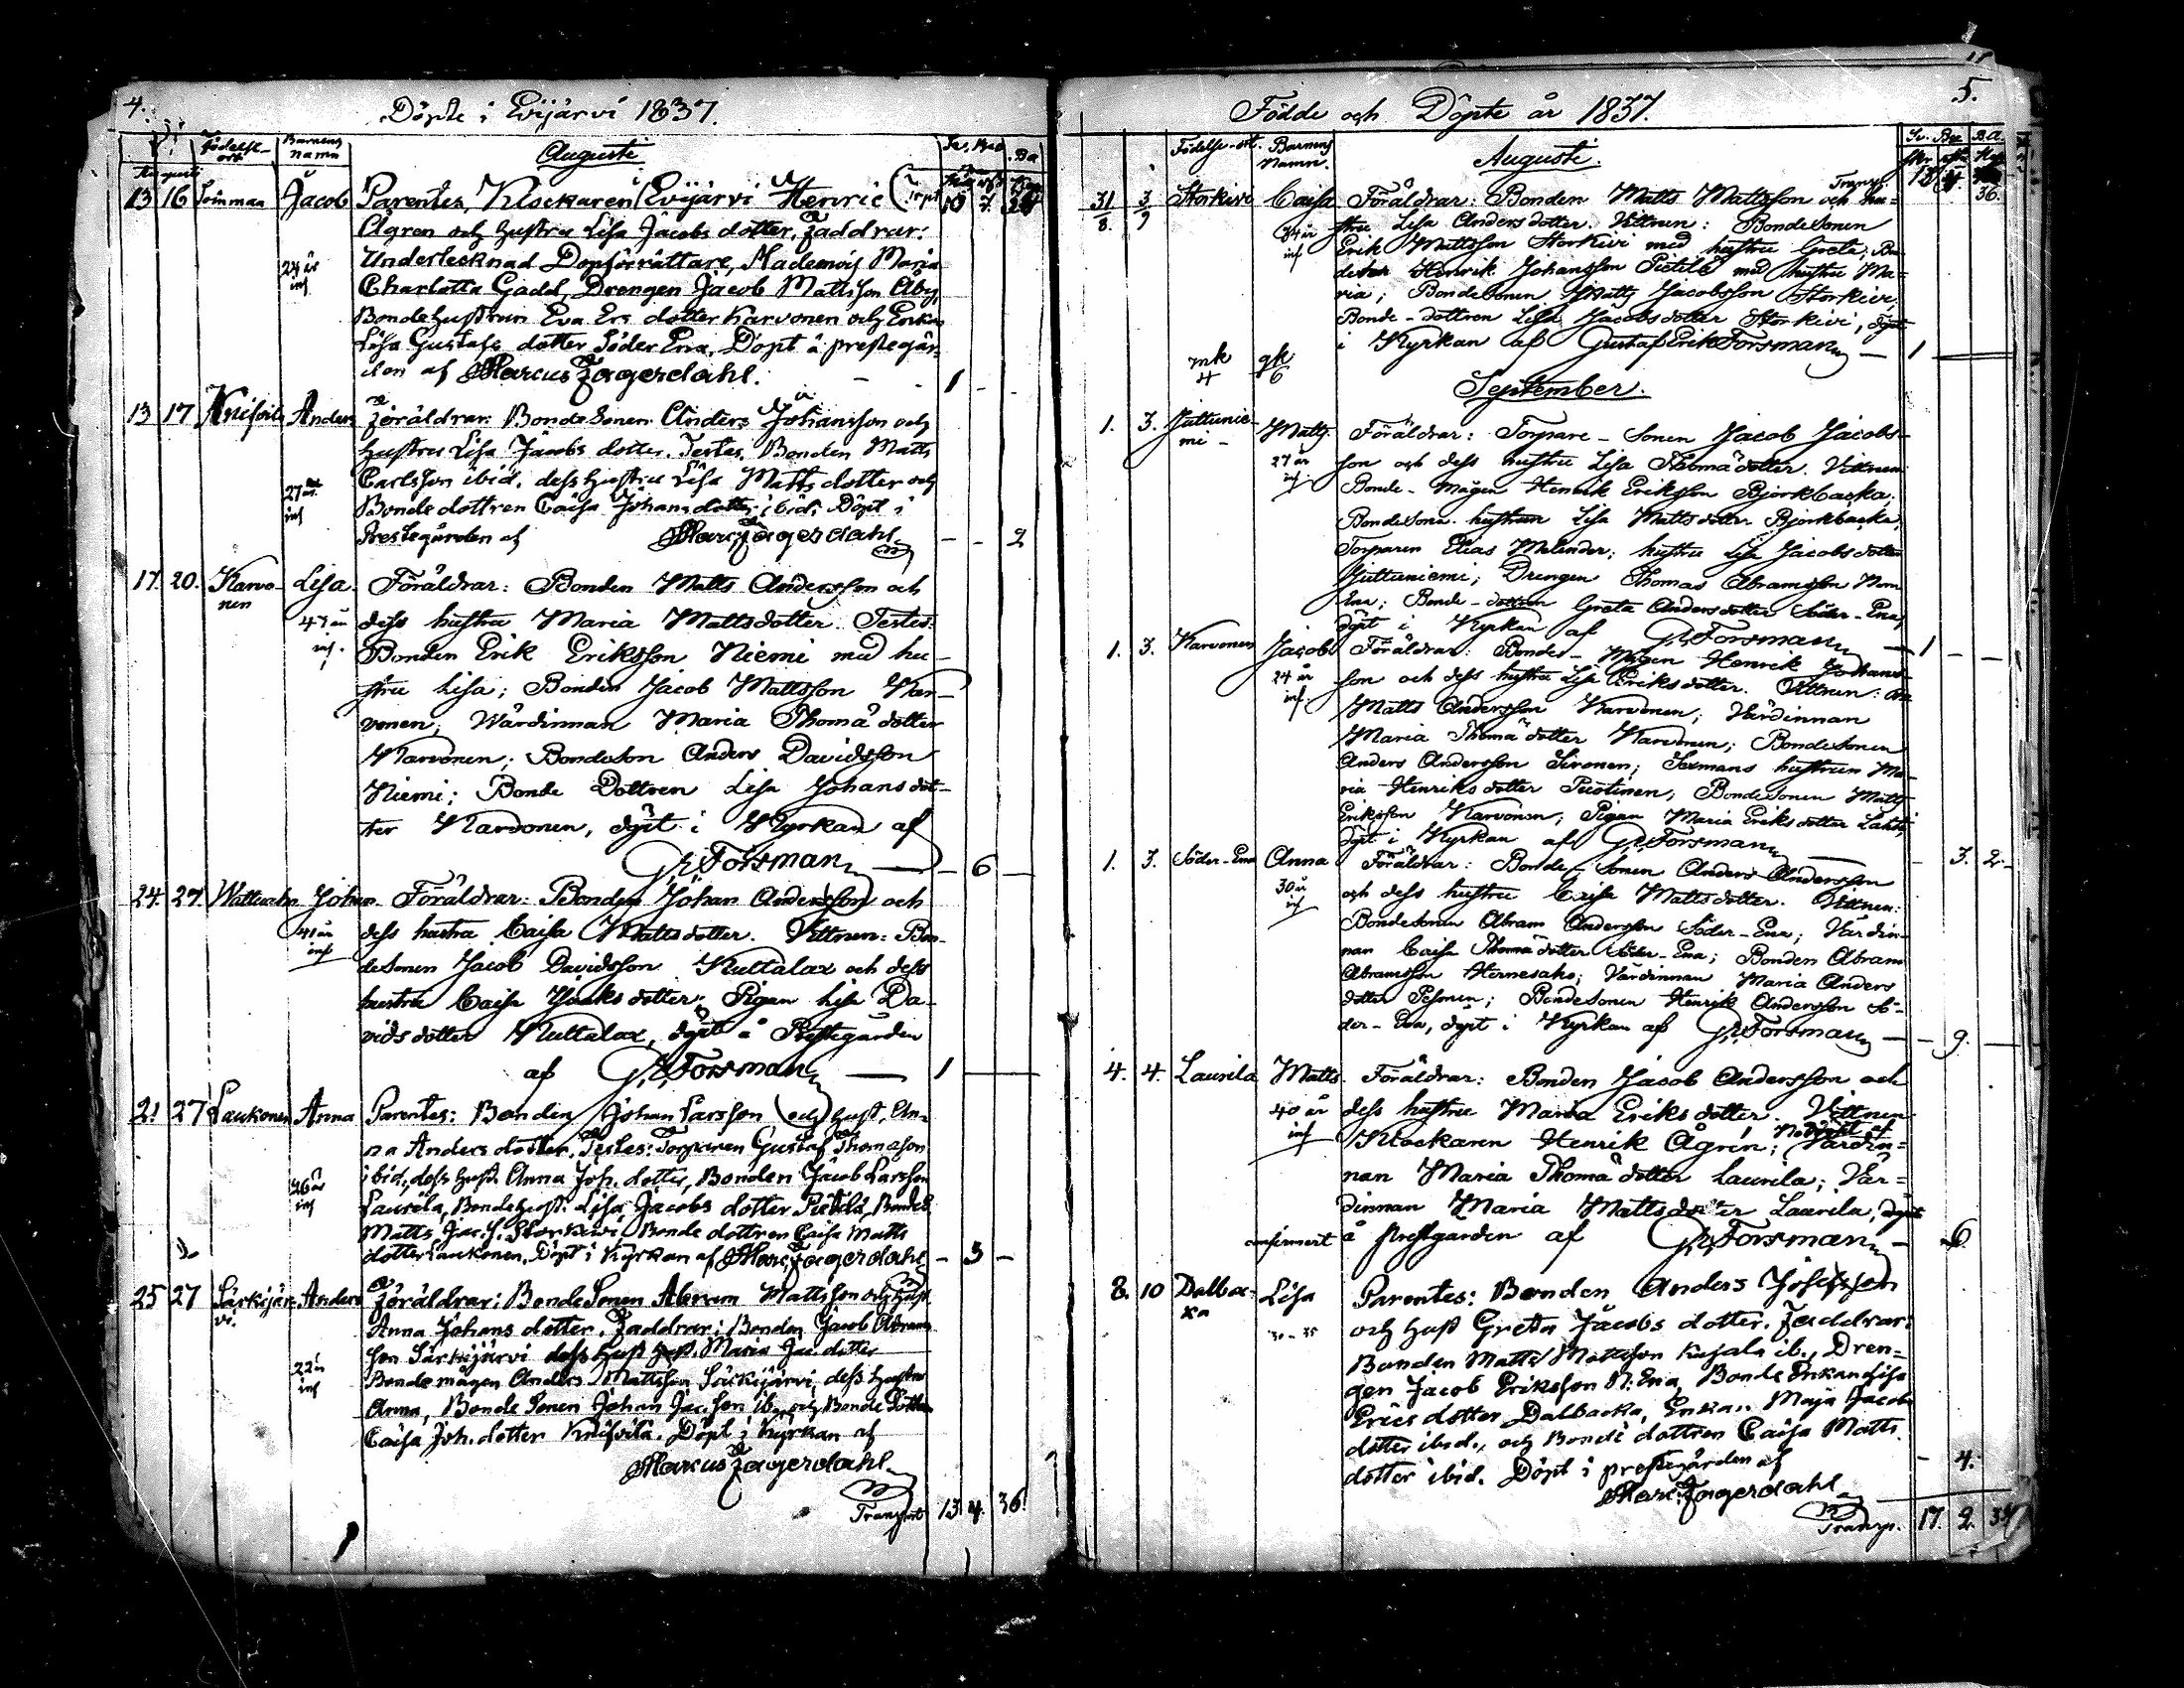 4.
Döpte i Evijärvi 1837.
Födelse-ort
Barnens namn
Augusti
13 16 Jacob Parentes, Klockaren i Evijärvi Henric
Ågren och hustru Lisa Jacobs dotter. Faddrar:
Undertecknad Dopförrättare, Mademois. Maria
Charlotta Gadd, Drengen Jacob Mattsson Åby,
Bondehustrun Eva Ers dotter Karvonen och Enkan
Lisa Gustafs dotter Söder Ena. Döpt å prestegår-
den af Marcus Fagerdahl. 1
13 17 Knifsilä Anders Föräldrar: Bonde Sonen Anders Johansson och
hustru Lisa Jacobs dotter. Testes, Bonden Matts
Carlsson ibid. dess hustru Lisa Matts dotter och
27 år
Bonde dottren Caisa Johans dotter ibid. Döpt i
Prestegården af Marc. Fagerdahl. 2
17. 20. Karvo-
nen
Lisa. Föräldrar: Bonden Matts Andersson och
dess hustru Maria Mattsdotter. Testes:
Bonden Erik Eriksson Niemi med hu-
stru Lisa; Bonden Jacob Mattsson Kar-
vonen; Wärdinnan Maria Thomä dotter
Karvonen; Bondeson Anders Davidsson
Niemi; Bonde Dottren Lisa Johansdot-
ter Karvonen, döpt i Kyrkan af
G. E. Forsman 6
24. 27. Johan Föräldrar: Bonden Johan Andersson och
41 år
dess hustru Caisa Mattsdotter. Vittnen: Bon-
desonen Jacob Davidsson Kultalax och dess
hustru Caisa Isaks dotter; Pigan Lisa Da-
vidsdotter Kultalax, döpt å Prestegården
af G. E. Forsman 1
21 27 Laukonen Anna Parentes: Bonden Johan Larsson och hust. An-
na Anders dotter. Testes: Torparen Gustaf Thomasson
ibid., dess hust. Anna Joh. dotter, Bonden Jacob Larsson
36 år
Laurila, Bondehust. Lisa Jacobs dotter Pietilä, Bondes.
Matts Jac. S. Storkivi, Bonde dottren Caisa Matts
dotter Laukonen. Döpt i Kyrkan af Marc. Fagerdahl 3
25 27 Särkijär-
vi.
Anders Föräldrar: Bonde Sonen Abram Mattsson och hust.
Anna Johans dotter. Faddrar: Bonden Jacob Abrams
son Särkijärvi dess hust. Maria Jac. dotter
22 år
Bonde mågen Anders Mattsson Särkijärvi, dess hustru
Anna, Bonde Sonen Johan Jac. Son ib. och Bonde Dottren
Caisa Joh. dotter Knifsilä. Döpt i Kyrkan af
Marcus Fagerdahl
Transport 13. 4. 36.
5.
Födde och Döpte år 1837.
Födelse-ort. Barnens Namn.
Augusti.
Transp. 36.
31/8. 3/9 Storkivi Caisa Föräldrar: Bonden Matts Mattsson och hu-
stru Lisa Andersdotter. Vittnen: Bondesonen
34 år
Erik Mattsson Storkivi med hustru Greta; Bon-
deson Henrik Johansson Pietilä med hustru Ma-
ria; Bondesonen Matts Jacobsson Storkivi.
Bonde-dottren Lisa Jacobsdotter Storkivi, döpt
i Kyrkan af Gustaf Erik Forsman 1
mk 4 qk 6
September.
1. 3. Juttunie-
mi-
Matts. Föräldrar: Torpare-Sonen Jacob Jacobs-
27 år
son och dess hustru Lisa Thomädotter. Vittnen
Bonde-mågen Henrik Eriksson Björkbacka.
Bondesons hustrun Lisa Mattsdotter Björkbacka,
Torparen Elias Melender; hustru Lisa Jacobsdotter
Juttuniemi; Drengen Thomas Abramsson Norr
Ena; Bonde-dottren Greta Andersdotter Söder-Ena,
döpt i Kyrkan af G. E. Forsman 1
1. 3. Karvonen Jacob Föräldrar: Bonde-Mågen Henrik Johans-
24 år
son och dess hustru Lisa Eriksdotter. Vittnen:
Matts Andersson Karvonen; Värdinnan
Maria Thomä dotter Karvonen; Bondesonen
Anders Andersson Sironen; Sexmans hustrun Ma-
ria Henriksdotter Puotinen, Bondesonen Matts
Eriksson Karvonen; Pigan Maria Eriksdotter Lahti,
döpt i Kyrkan af G. E. Forsman 3. 2.
1. 3. Söder-Ena Anna Föräldrar: Bonde-Sonen Anders Andersson
30 år
och dess hustru Caisa Mattsdotter. Vittnen:
Bondesonen Abram Andersson Söder-Ena; Värdin-
nan Caisa Thomädotter Söder-Ena; Bonden Abram
Abramsson Hernesaho; Värdinnan Maria Anders
dotter Pesonen; Bondesonen Henrik Andersson Sö-
der-Ena, döpt i Kyrkan af G. E. Forsman 9.
4. 4. Laurila Matts. Föräldrar: Bonden Jacob Andersson och
40 år
dess hustru Maria Eriksdotter. Vittnen
Nöddöpt af
Klockaren Henrik Ågrén; Värdin-
nan Maria Thomä dotter Laurila; Vär-
dinnan Maria Mattsdotter Laurila, döpt
confirmert å prestgården af G. E. Forsman 6.
8. 10 Dalbac-
ka
Lisa Parentes: Bonden Anders Josefsson
30-35
och hust Greta Jacobs dotter. Faddrar:
Bonden Matts Mattsson Kujala ib., Dren-
gen Jacob Eriksson N. Ena, Bonde Enkan Lisa
Erics dotter Dalbacka, Enkan Maja Jacobs
dotter ibid., och Bonde dottren Caisa Matts
dotter ibid. Döpt i prestegården af 4.
Marc. Fagerdahl
Transp. 17. 2. 34.